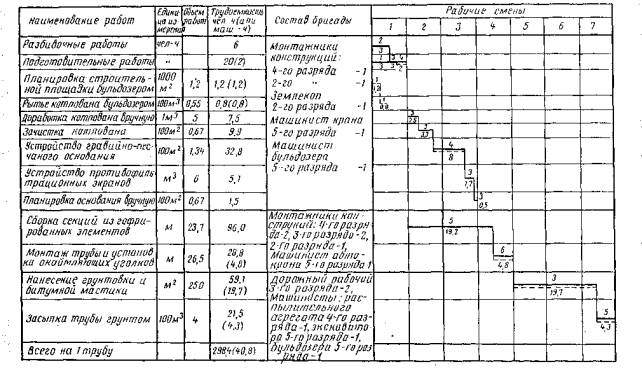 Наименование работ
Единица измерения
Объем работ
Трудоемкость чел·ч (или маш·ч)
Состав бригады
Рабочие смены
1 2 3 4 5 6 7
Разбивочные работы чел-ч 6
Подготовительные работы " 20(2)
Планировка строительной площадки бульдозером 1000 м² 1,2 1,2(1,2)
Рытье котлована бульдозером 100м³ 0,55 0,8(0,8)
Доработка котлована вручную 1м³ 5 7,5
Зачистка котлована 100м² 0,67 9,9
Устройство гравийно-песчаного основания 100м² 1,34 32,8
Устройство противофильтрационных экранов м³ 6 5,1
Планировка основания вручную 100м² 0,67 1,5
Сборка секций из гофрированных элементов м 23,7 96,0
Монтаж трубы и установка окаймляющих уголков м 26,5 28,8 (4,8)
Нанесение грунтовки и битумной мастики м² 250 59,1 (19,7)
Засыпка трубы грунтом 100м³ 4 21,5 (4,3)
Всего на 1 трубу 298,4(40,8)
Монтажники
конструкций:
4-го разряда -1
2-го " -1
Землекоп
2-го разряда -1
Машинист крана
5-го разряда -1
Машинист
бульдозера
5-го разряда -1
Монтажники конструкций: 4-го разряда-2, 3-го разряда-2,
2-го разряда-1,
Машинист автокрана 5-го разряда 1
Дорожный рабочий
3-го разряда-2,
Машинисты: распылительного
агрегата 4-го разряда-1, экскаватора 5-го разряда-1,
бульдозера 5-го разряда-1
4
8
3
1,7
3
0,5
5
19,2
6
4,8
3
19,7
5
4,3